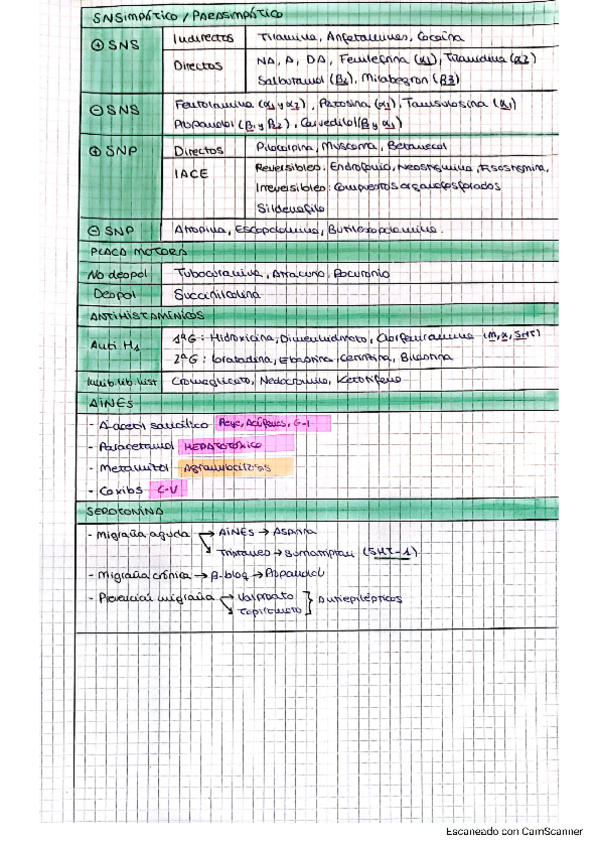 SNSIMPÁTICO / PARASIMPÁTICO
⊕ SNS
Indirectos
Tiramina, Anfetaminas, Cocaína
Directos
NA, A, DA, Fenilefrina (α1), Tizanidina (α2)
Salbutamol (β2), Mirabegron (β3)
⊖ SNS
Fentolamina (α1 y α2), Prazosina (α1), Tamsulosina (α1)
Propanolol (β1 y β2), Carvedilol (β y α1)
⊕ SNP
Directos
Pilocarpina, Muscarina, Betanecol
IACE
Reversibles: Endrofonio, Neostigmina, Fisostigmina,
Irreversibles: Compuestos organofosforados
Sildenafilo
⊖ SNP
Atropina, Escopolamina, Butilescopolamina.
PLACA MOTORA
No despol
Tubocurarina, Atracurio, Rocuronio
Despol
Succinilcolina
ANTIHISTAMÍNICOS
Anti H1
1ªG: Hidroxicina, Dimenhidrinato, Clorfeniramina (M, α, 5HT)
2ªG: Loratadina, Ebastina, Cetirizina, Bilastina
Inhib. lib. hist
Cromoglicato, Nedocromilo, Ketotifeno
AINES
- A. acetil salicílico Reye, Acúfenos, G-I
- Paracetamol HEPATOTÓXICO
- Metamizol Agranulocitosis
- Coxibs C-V
SEROTONINA
- Migraña aguda → AINES → Aspirina
→ Triptanes → Sumatriptan (5HT-1)
- Migraña crónica → β-bloq → Propanolol
- Prevención migraña → Valproato
→ Topiramato } Antiepilépticos
Escaneado con CamScanner